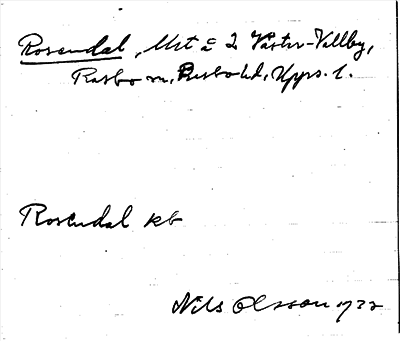 Rosendal, Ust à 2 Väster-Vallby,
Rasbo sn, Rasbo hd, Upps. l.
Rosendal kb
Nils Olsson 1932